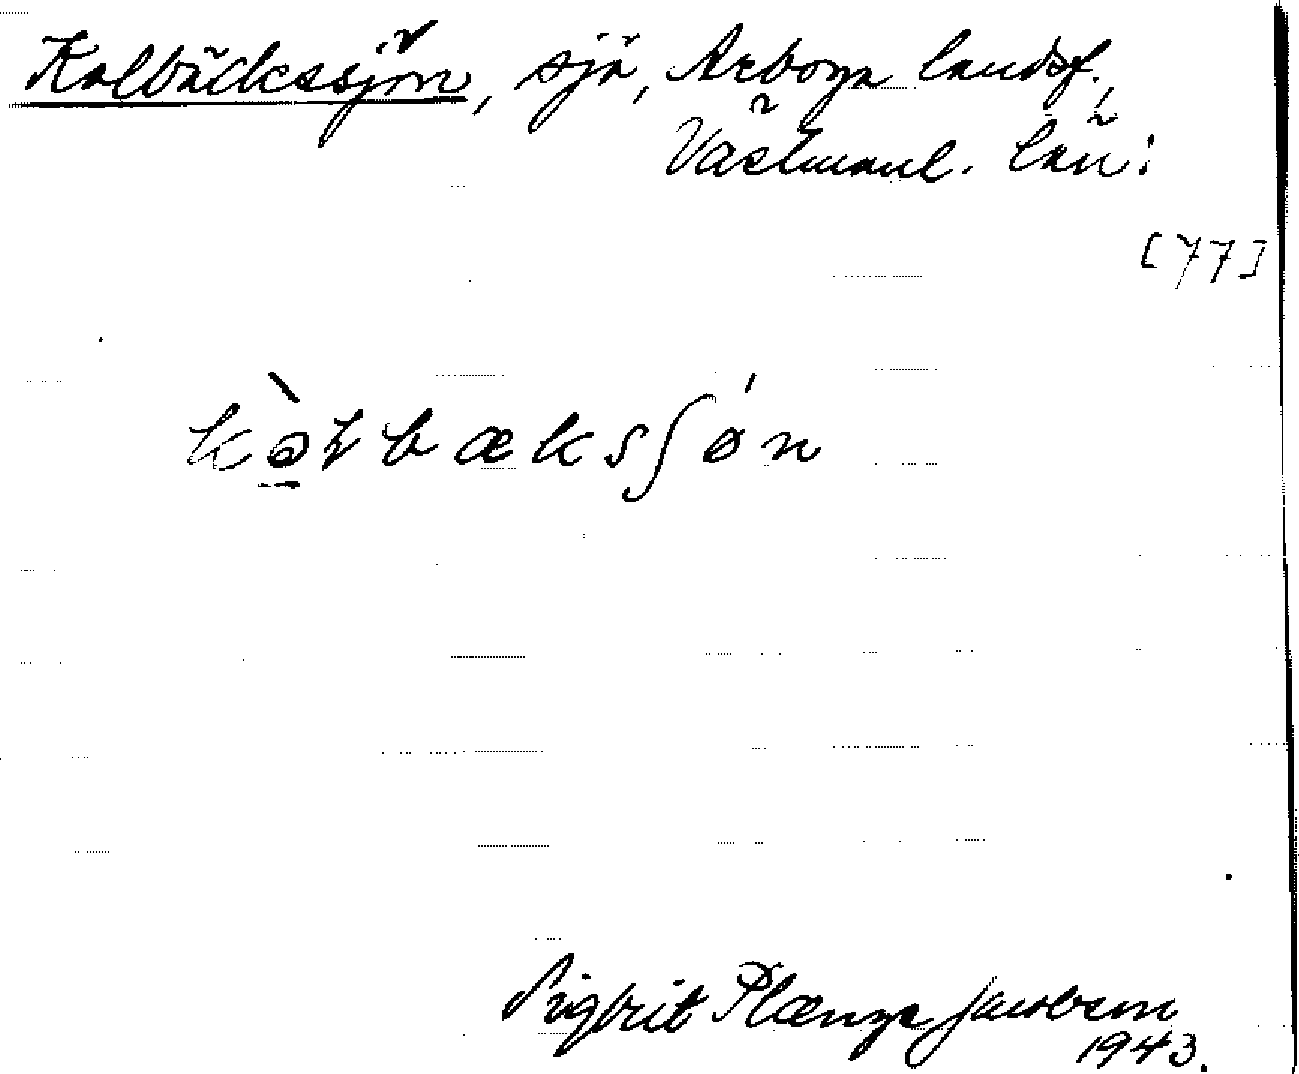 Kolbäckssjön, sjö, Arboga landsf.,
Västmanl. län:
[77]
kòłbæksʃǿn
Sigbrit Plænge Jacobson
1943.